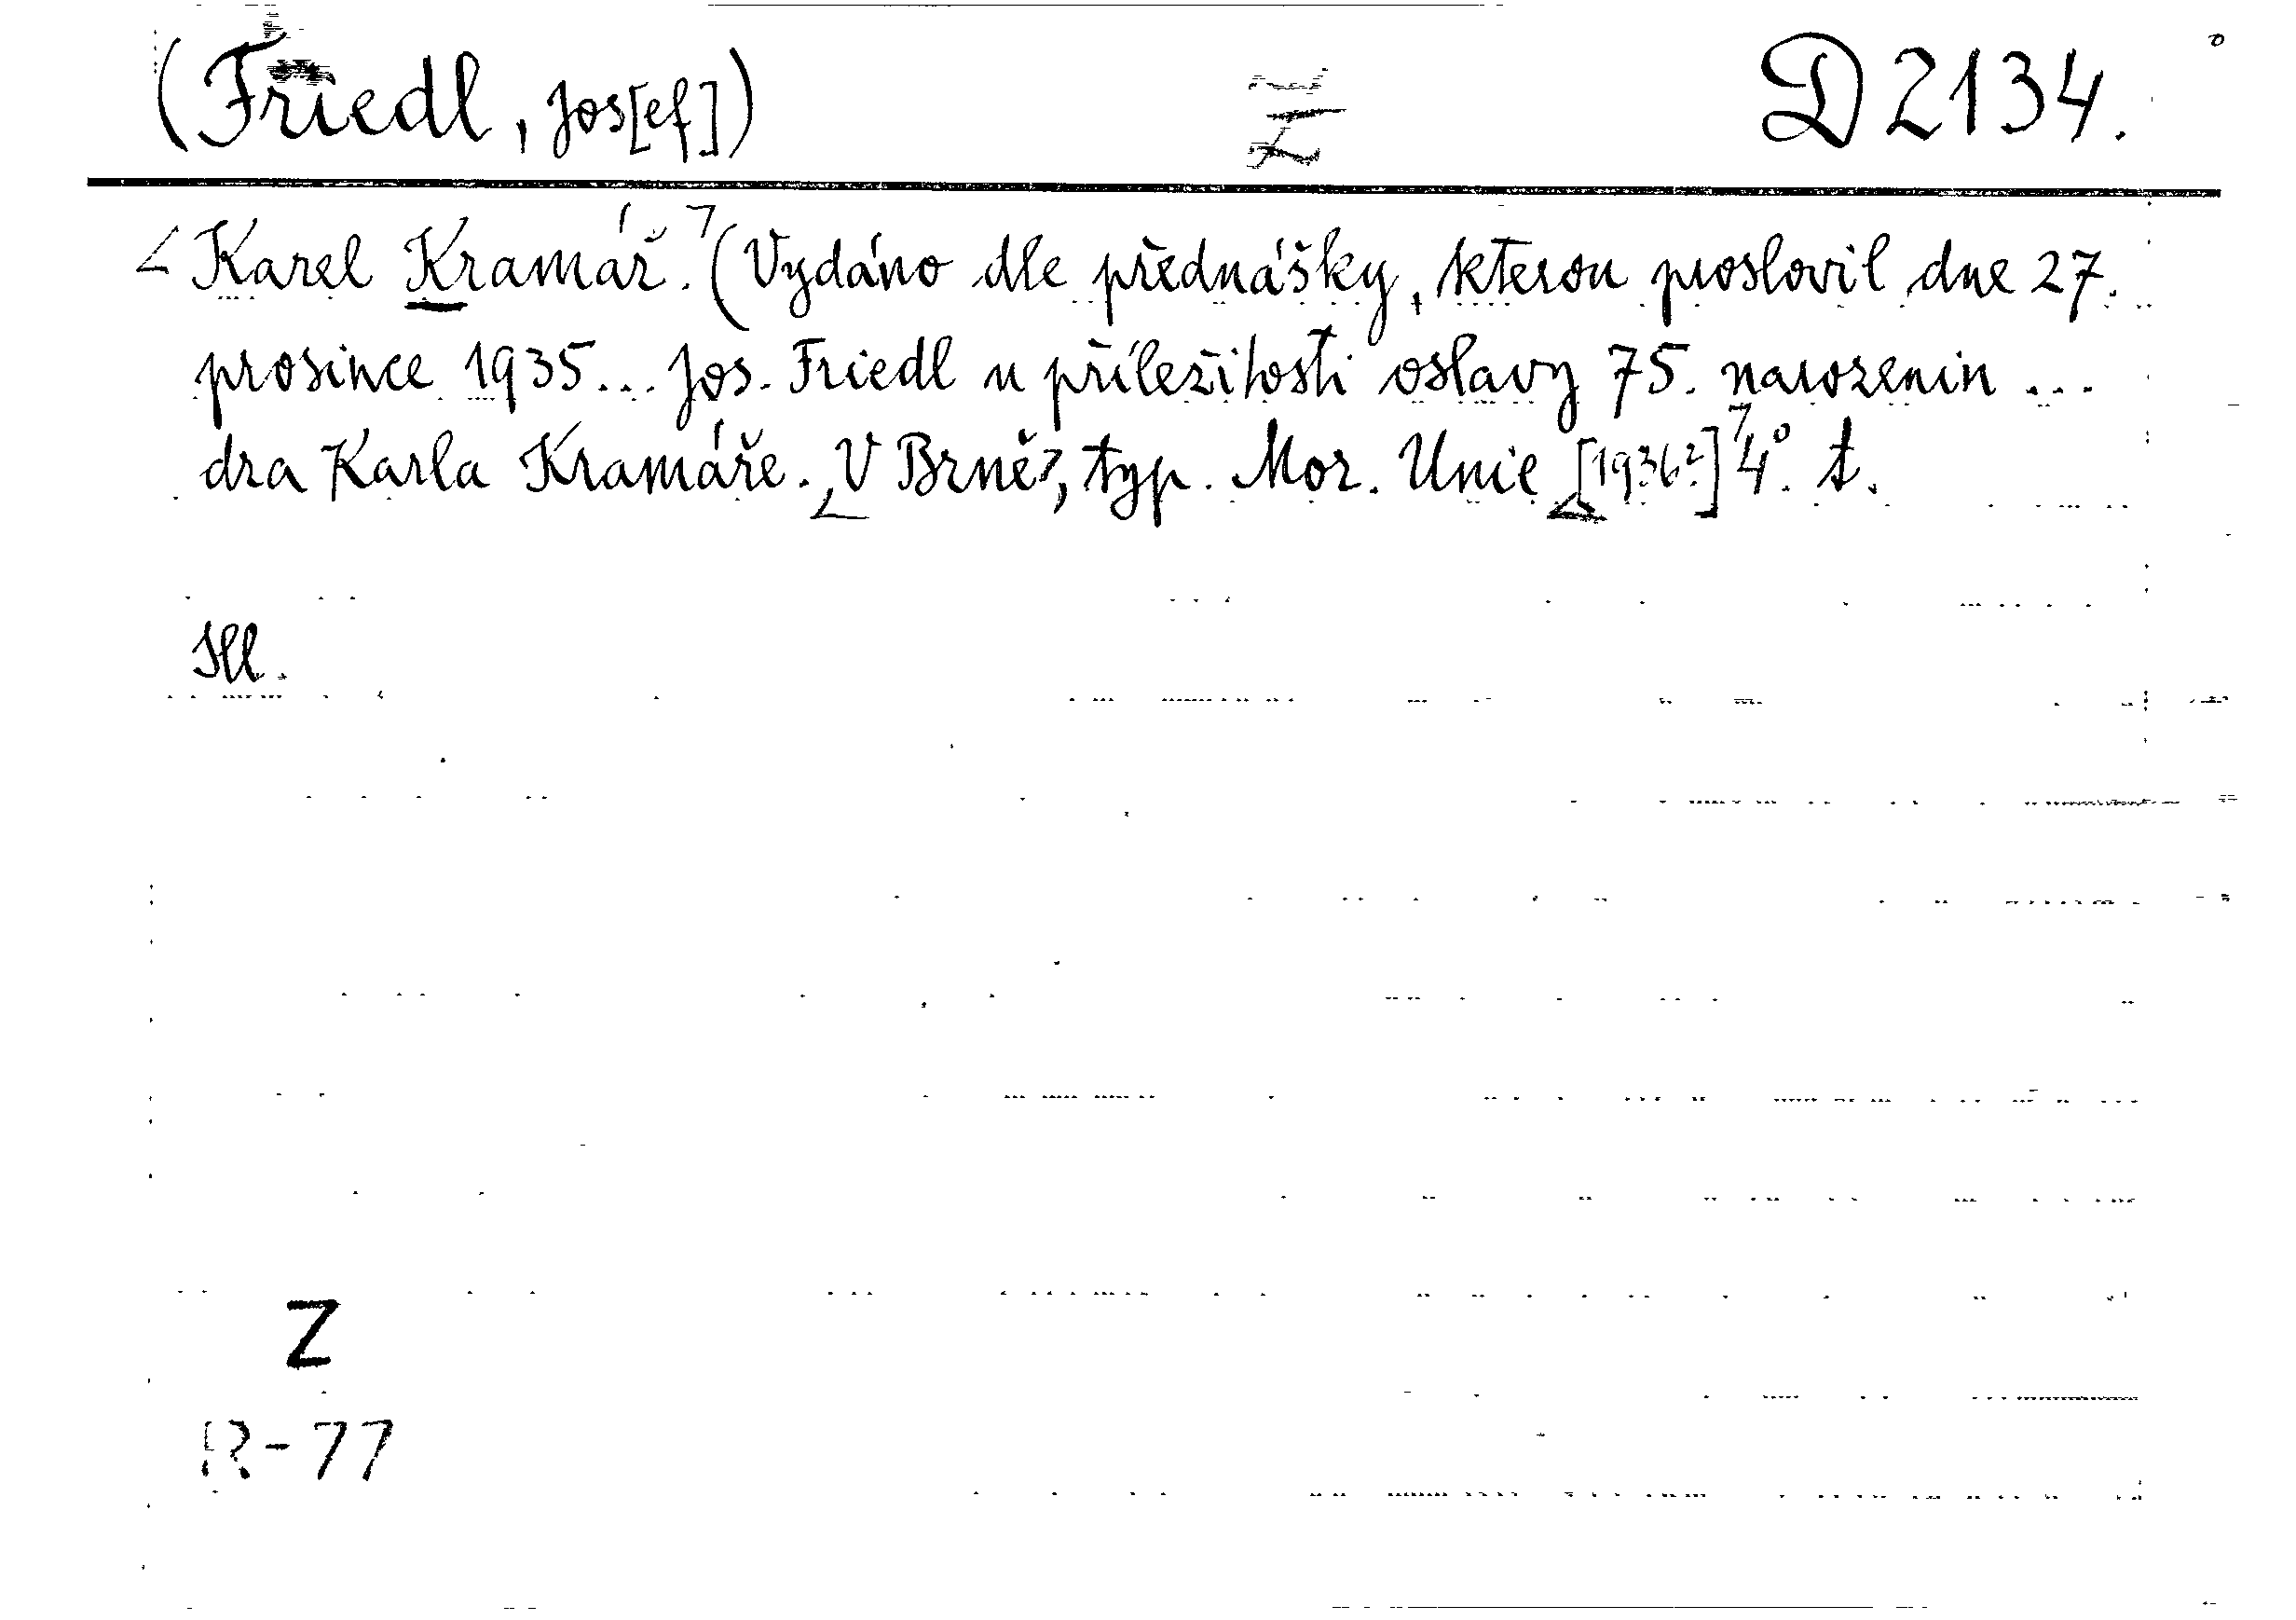 (Friedl, Jos[ef]) Z D 2134.
Karel Kramář. (Vydáno dle přednášky, kterou proslovil dne 27.
prosince 1935... Jos. Friedl u příležitosti oslavy 75. narozenin ...
dra Karla Kramáře. V Brně, typ. Mor. Unie [1936?] 4°. t.
Ill.
Z
R-77